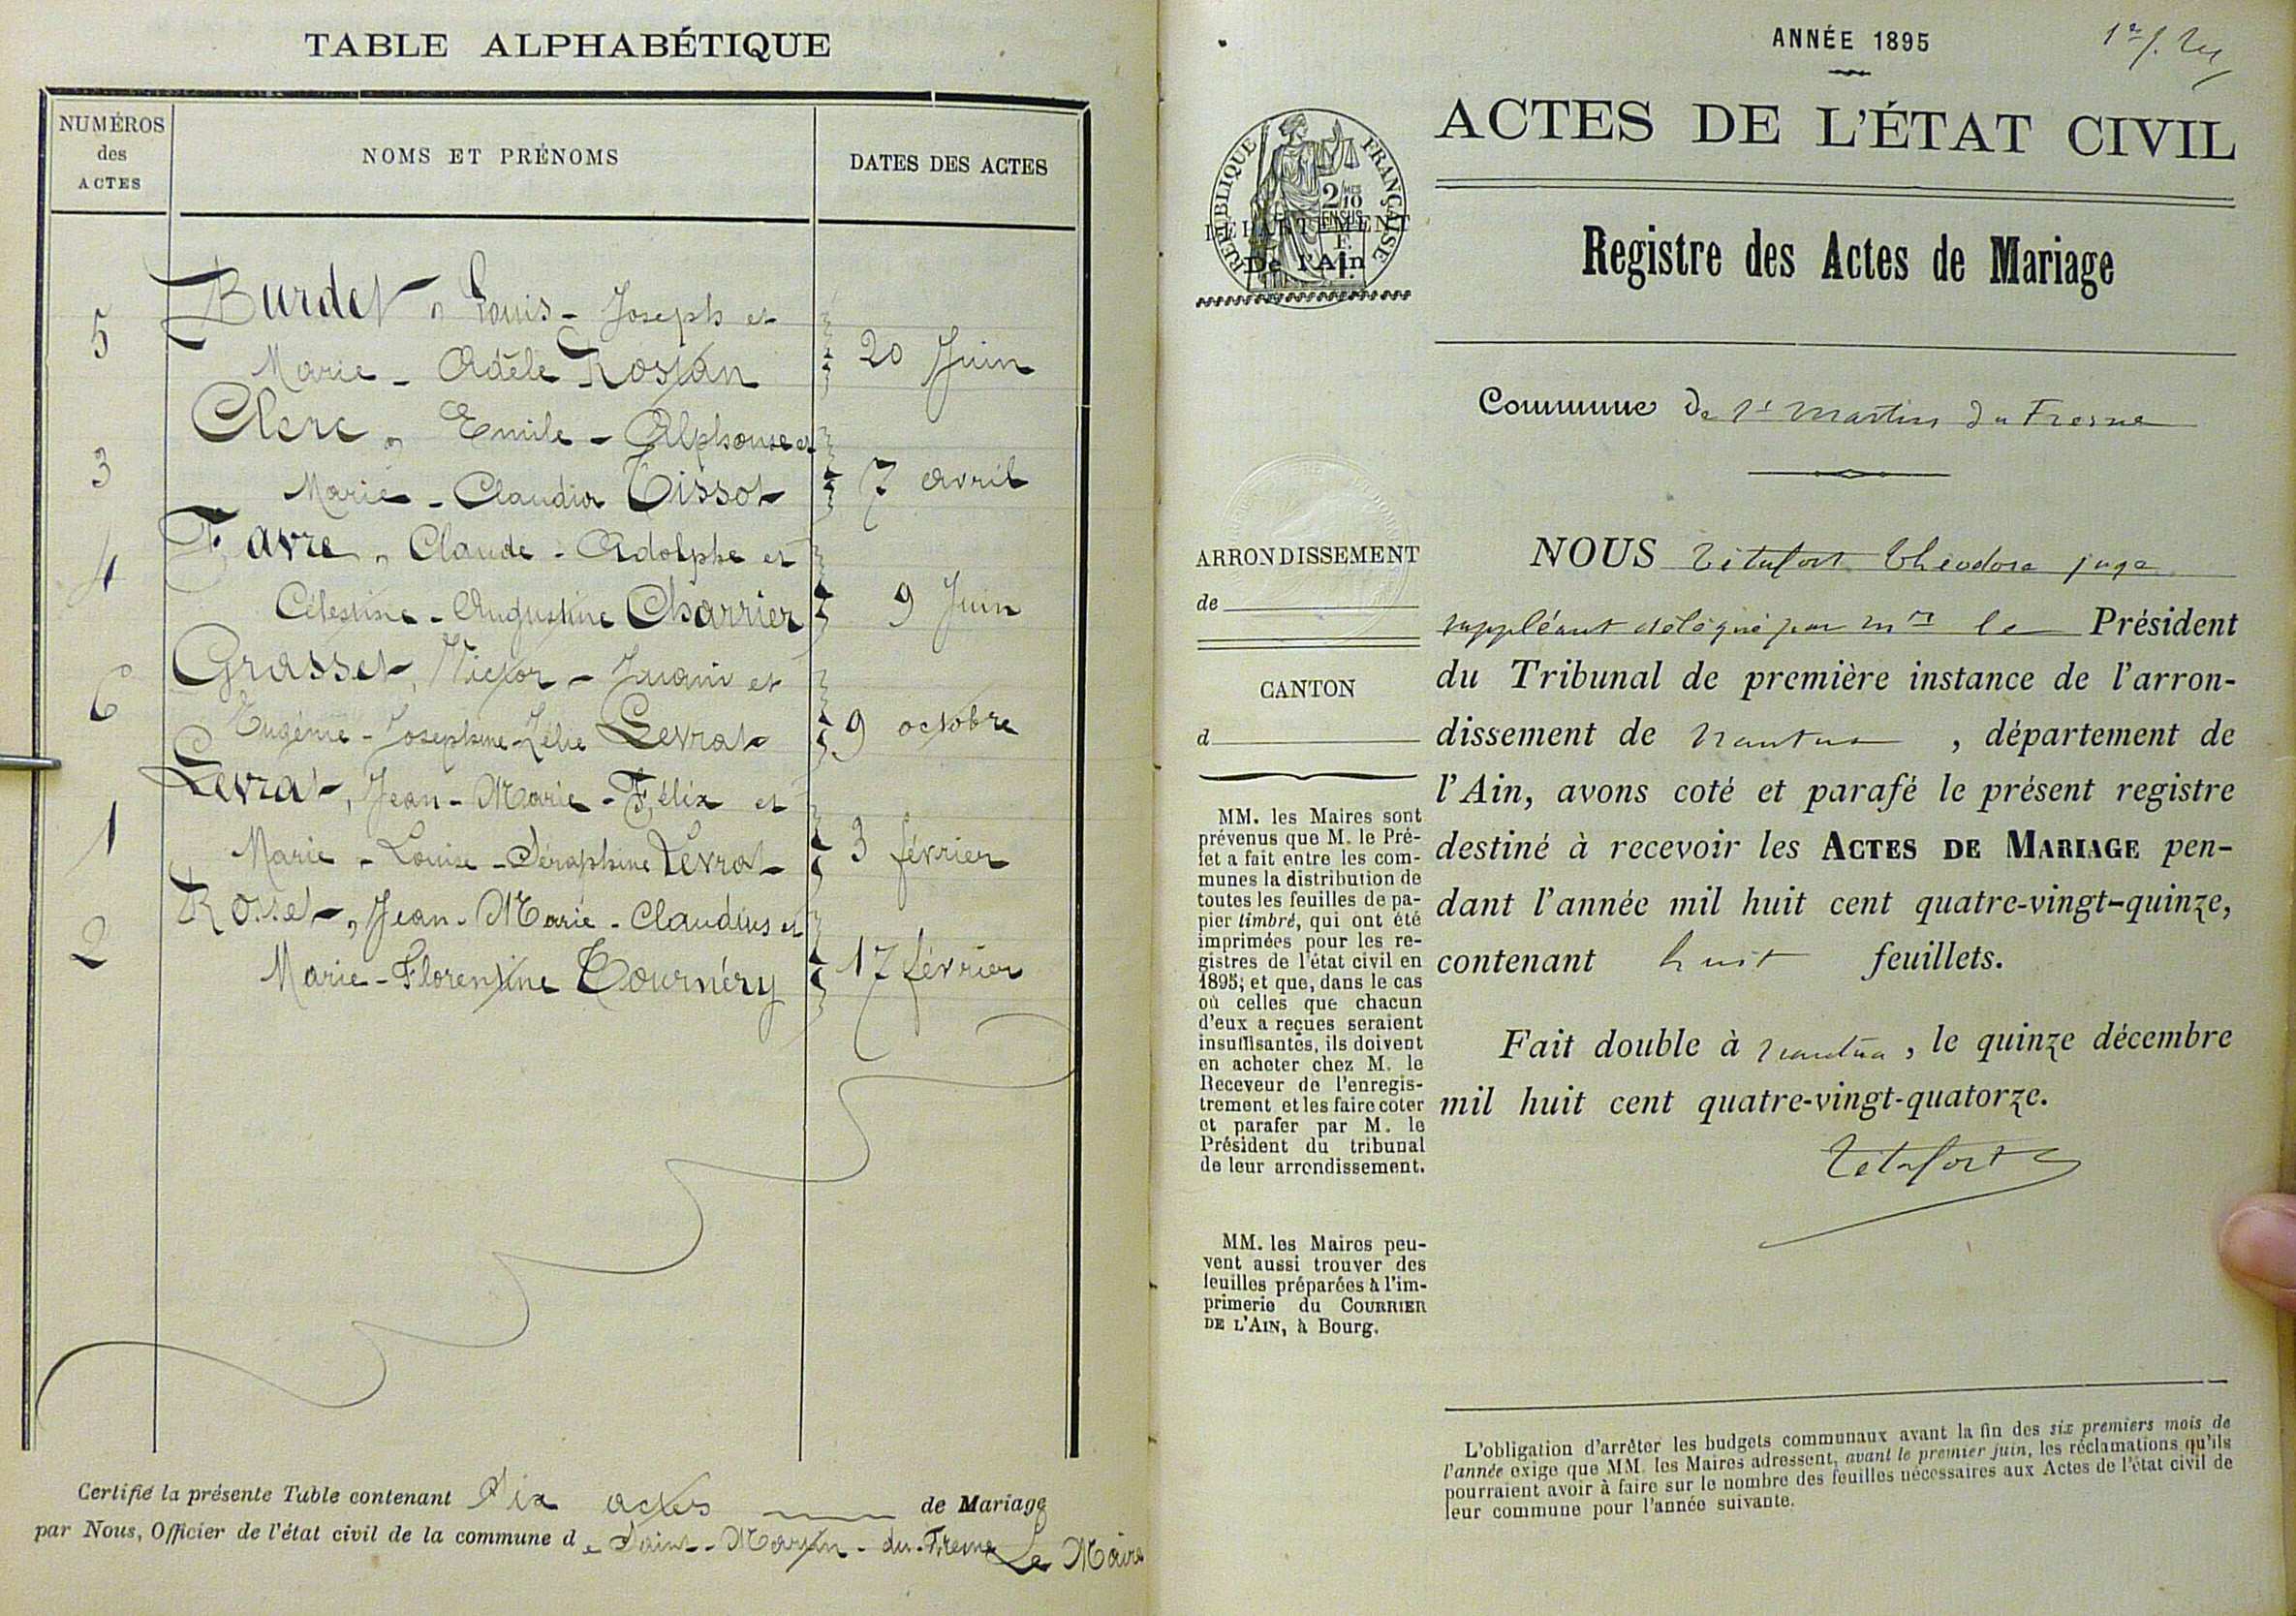 TABLE ALPHABÉTIQUE
NUMÉROS
des
ACTES
NOMS ET PRÉNOMS
DATES DES ACTES
Burdet, Louis - Joseph et
5
20 Juin
Marie - Adèle Rostan
Clerc, Emile - Alphonse et
3
7 avril
Marie - Claudia Tissot
Favre, Claude - Adolphe et
4
9 Juin
Célestine - Augustine Charrier
Grasset, Victor - Juani et
6
9 octobre
Eugénie - Josephine - Zélie Levrat
Levrat, Jean - Marie - Félix et
1
3 février
Marie - Louise - Séraphine Levrat
Rosset, Jean - Marie - Claudius et
2
17 février
Marie - Florentine Tournéry
Certifié la présente Table contenant Six actes de Mariage
par Nous, Officier de l'état civil de la commune de Saint - Martin - du - Fresne Le Maire
ANNÉE 1895
ACTES DE L'ÉTAT CIVIL
RÉPUBLIQUE FRANÇAISE
2/10
EN SUS
DÉPARTEMENT
De l'Ain
Registre des Actes de Mariage
Commune de St Martin du Fresne
ARRONDISSEMENT
de
CANTON
d
MM. les Maires sont
prévenus que M. le Pré-
fet a fait entre les com-
munes la distribution de
toutes les feuilles de pa-
pier timbré, qui ont été
imprimées pour les re-
gistres de l'état civil en
1895; et que, dans le cas
où celles que chacun
d'eux a reçues seraient
insuffisantes, ils doivent
en acheter chez M. le
Receveur de l'enregis-
trement et les faire coter
et parafer par M. le
Président du tribunal
de leur arrondissement.
MM. les Maires peu-
vent aussi trouver des
feuilles préparées à l'im-
primerie du COURRIER
DE L'AIN, à Bourg.
NOUS Tétafort Théodore juge
suppléant délégué par Mr le Président
du Tribunal de première instance de l'arron-
dissement de Nantua, département de
l'Ain, avons coté et parafé le présent registre
destiné à recevoir les ACTES DE MARIAGE pen-
dant l'année mil huit cent quatre-vingt-quinze,
contenant huit feuillets.
Fait double à Nantua, le quinze décembre
mil huit cent quatre-vingt-quatorze.
Tétafort
L'obligation d'arrêter les budgets communaux avant la fin des six premiers mois de
l'année exige que MM. les Maires adressent, avant le premier juin, les réclamations qu'ils
pourraient avoir à faire sur le nombre des feuilles nécessaires aux Actes de l'état civil de
leur commune pour l'année suivante.